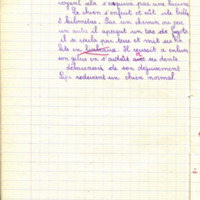 voyant cela s'esquiva par une lucarne
Le chien s'enfuit et
kilomètres. Par un chemin ou par
un autre il aperçut un tas de fagots
il se roula par terre et mit ses
en lambeaux. Il réussit à enlever
son gilet en s'aidant avec ses dents.
débarrassé de son déguisement
redevient un chien normal